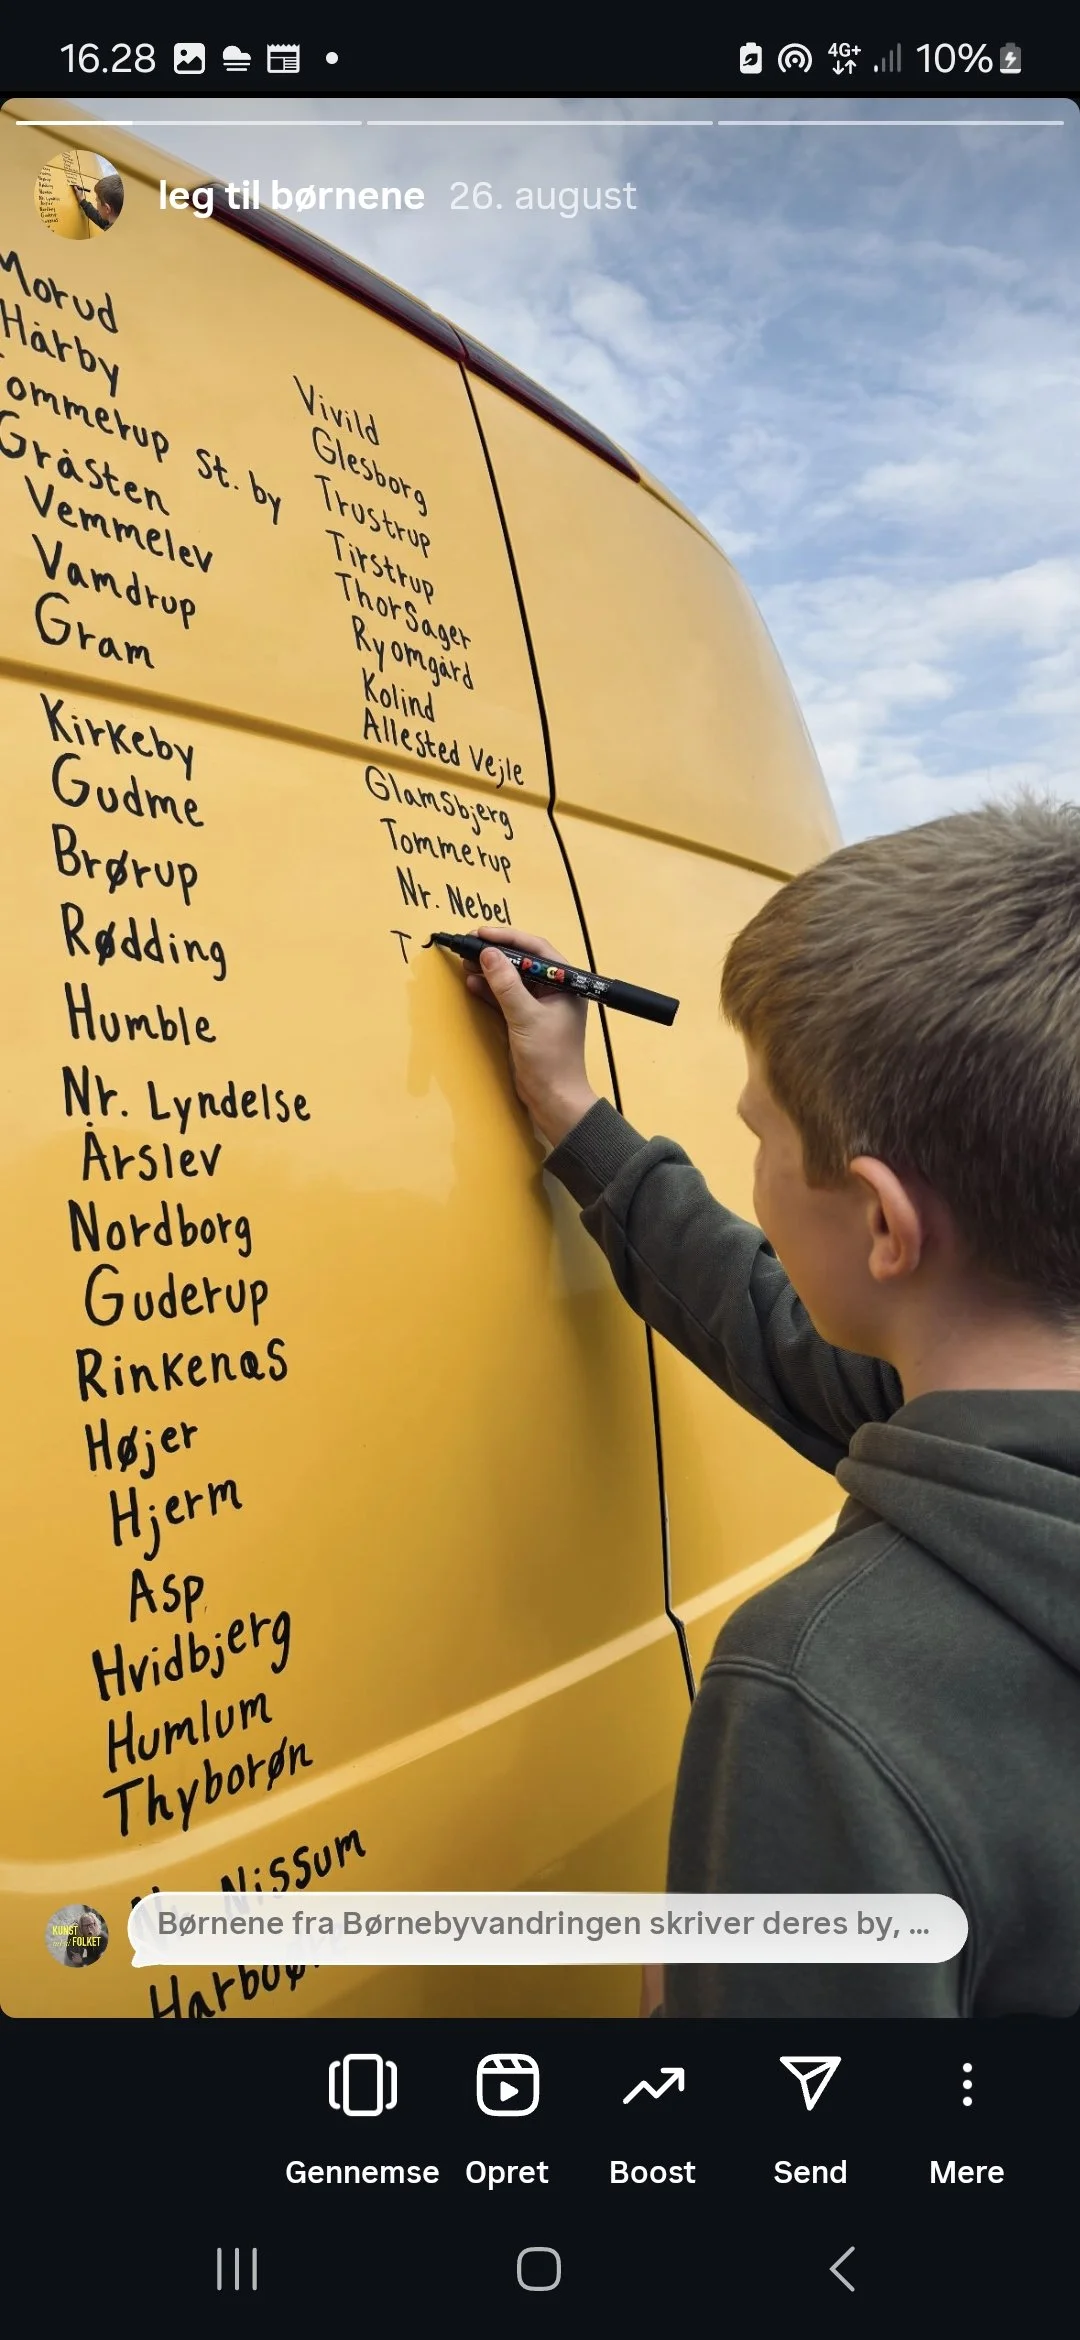 16.28
4G+
10%
leg til børnene 26. august
Morud
Hårby
ommerup St. by
Gråsten
Vemmelev
Vamdrup
Gram
Kirkeby
Gudme
Brørup
Rødding
Humble
Nr. Lyndelse
Årslev
Nordborg
Guderup
Rinkenæs
Højer
Hjerm
Asp
Hvidbjerg
Humlum
Thyborøn
Nissum
Vivild
Glesborg
Trustrup
Tirstrup
ThorSager
Ryomgård
Kolind
Allested Vejle
Glamsbjerg
Tommerup
Nr. Nebel
T
POSCA
KUNST
FOLKET
Børnene fra Børnebyvandringen skriver deres by, ...
Gennemse
Opret
Boost
Send
Mere